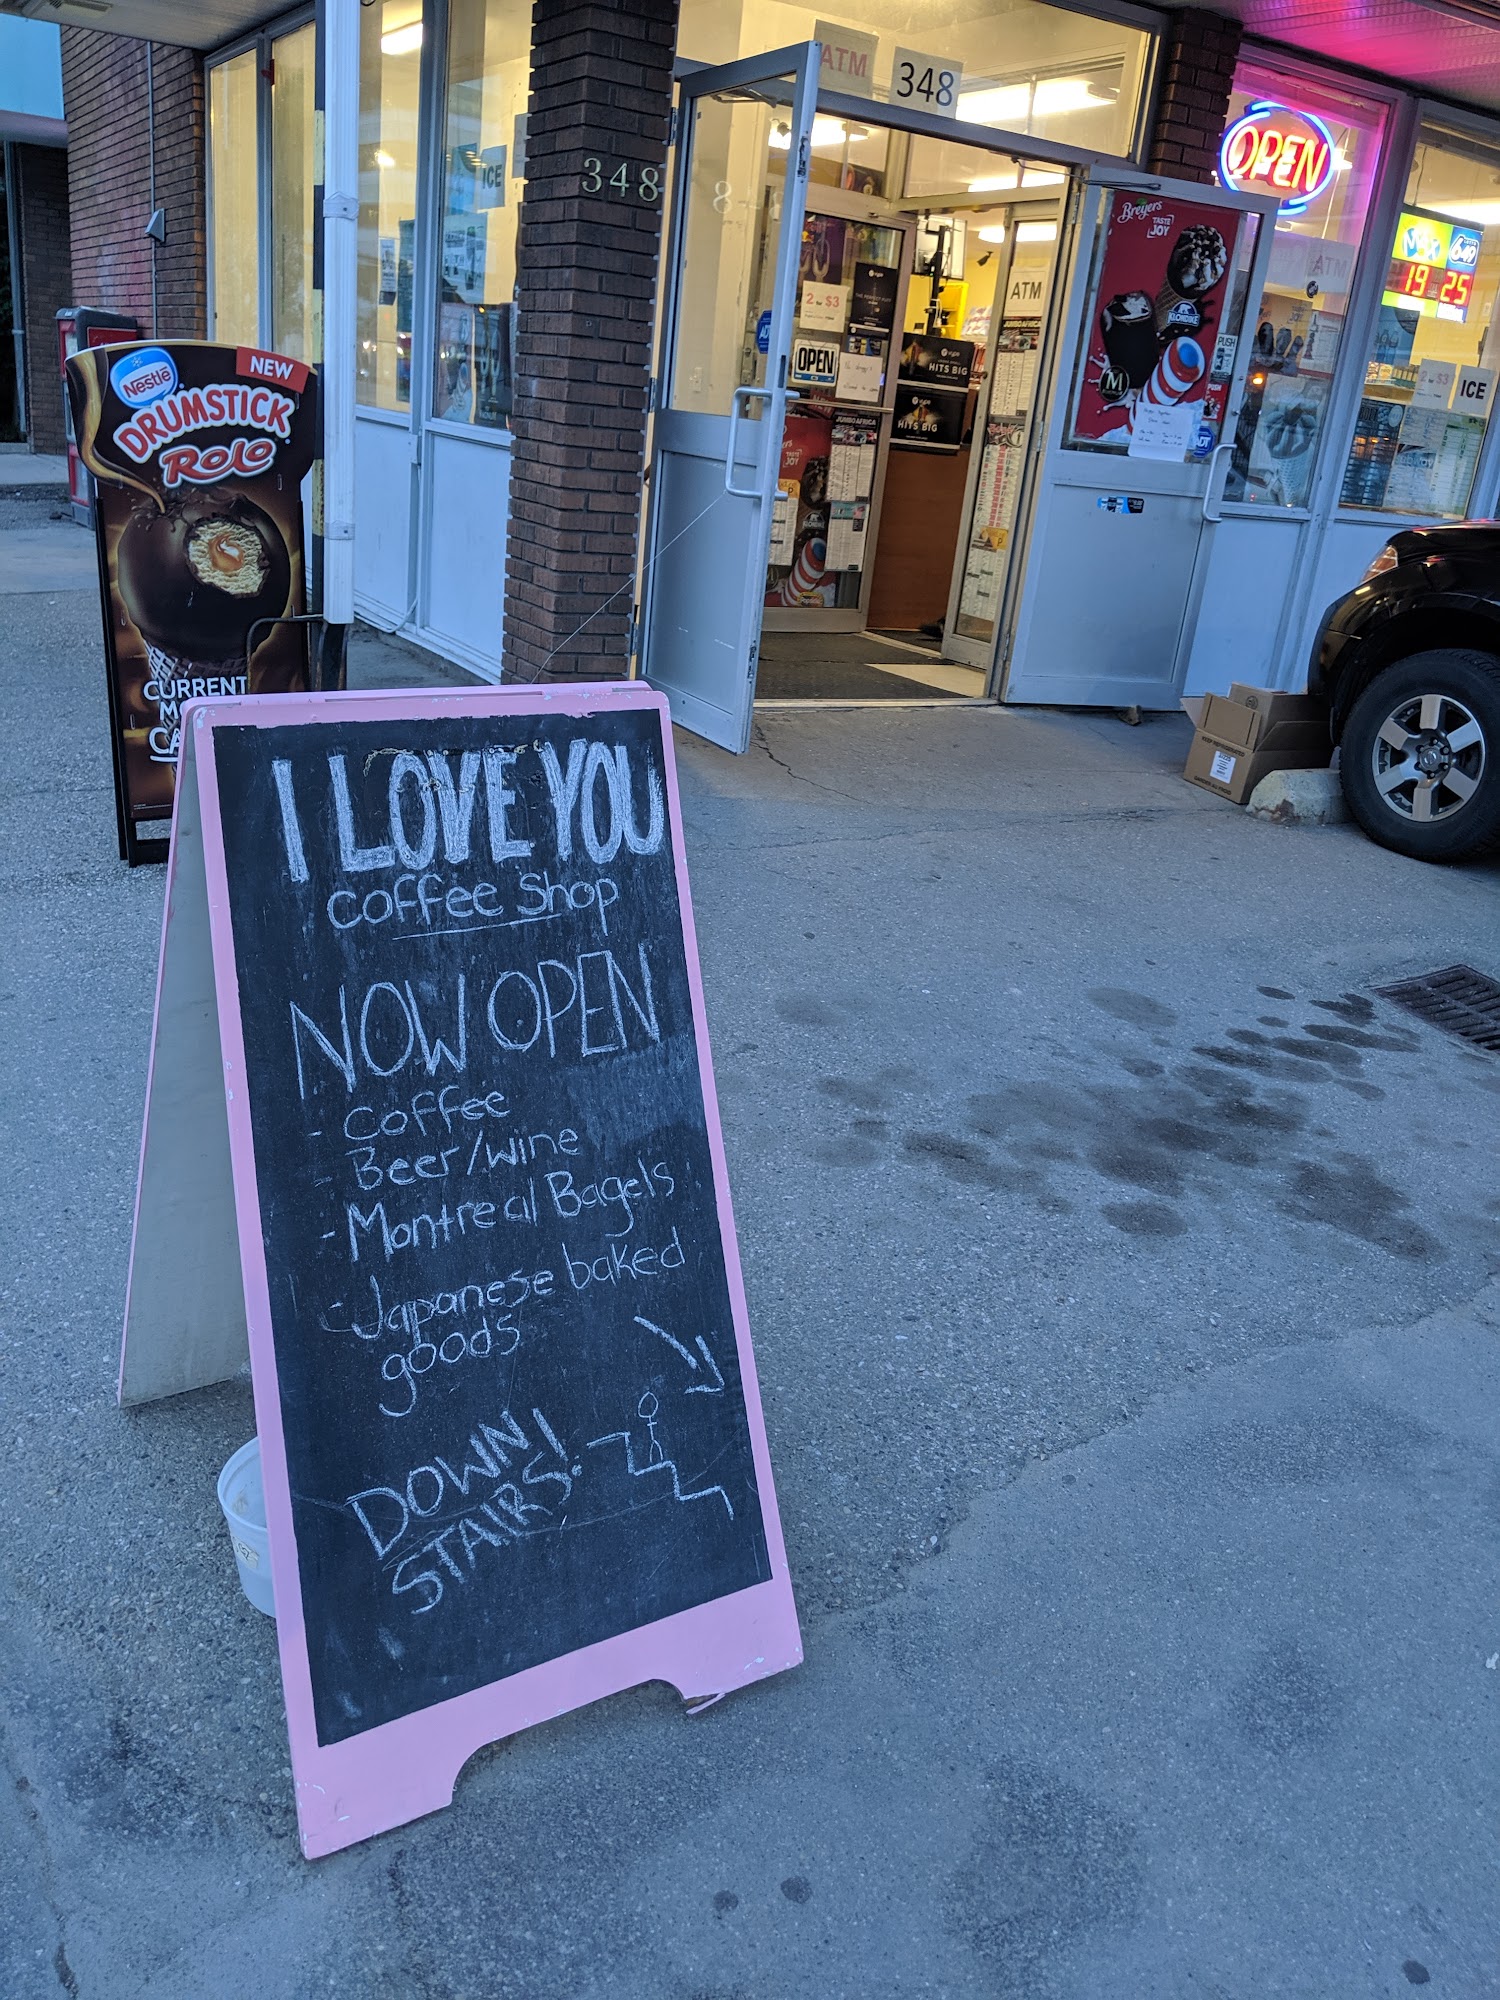 ATM
348
348
ICE
OPEN
Breyers
TASTE
JOY
MAX
649
19
25
ATM
ATM
2 for $3
OPEN
HITS BIG
HITS BIG
JUMBO AFRICA
KLONDIKE
M
PUSH
PUSH
ADT
2 for $3
ICE
Nestlé
NEW
DRUMSTICK
ROLO
CURRENT
I LOVE YOU
coffee shop
NOW OPEN
- Coffee
- Beer/wine
- Montreal Bagels
- Japanese baked
goods
DOWN
STAIRS!